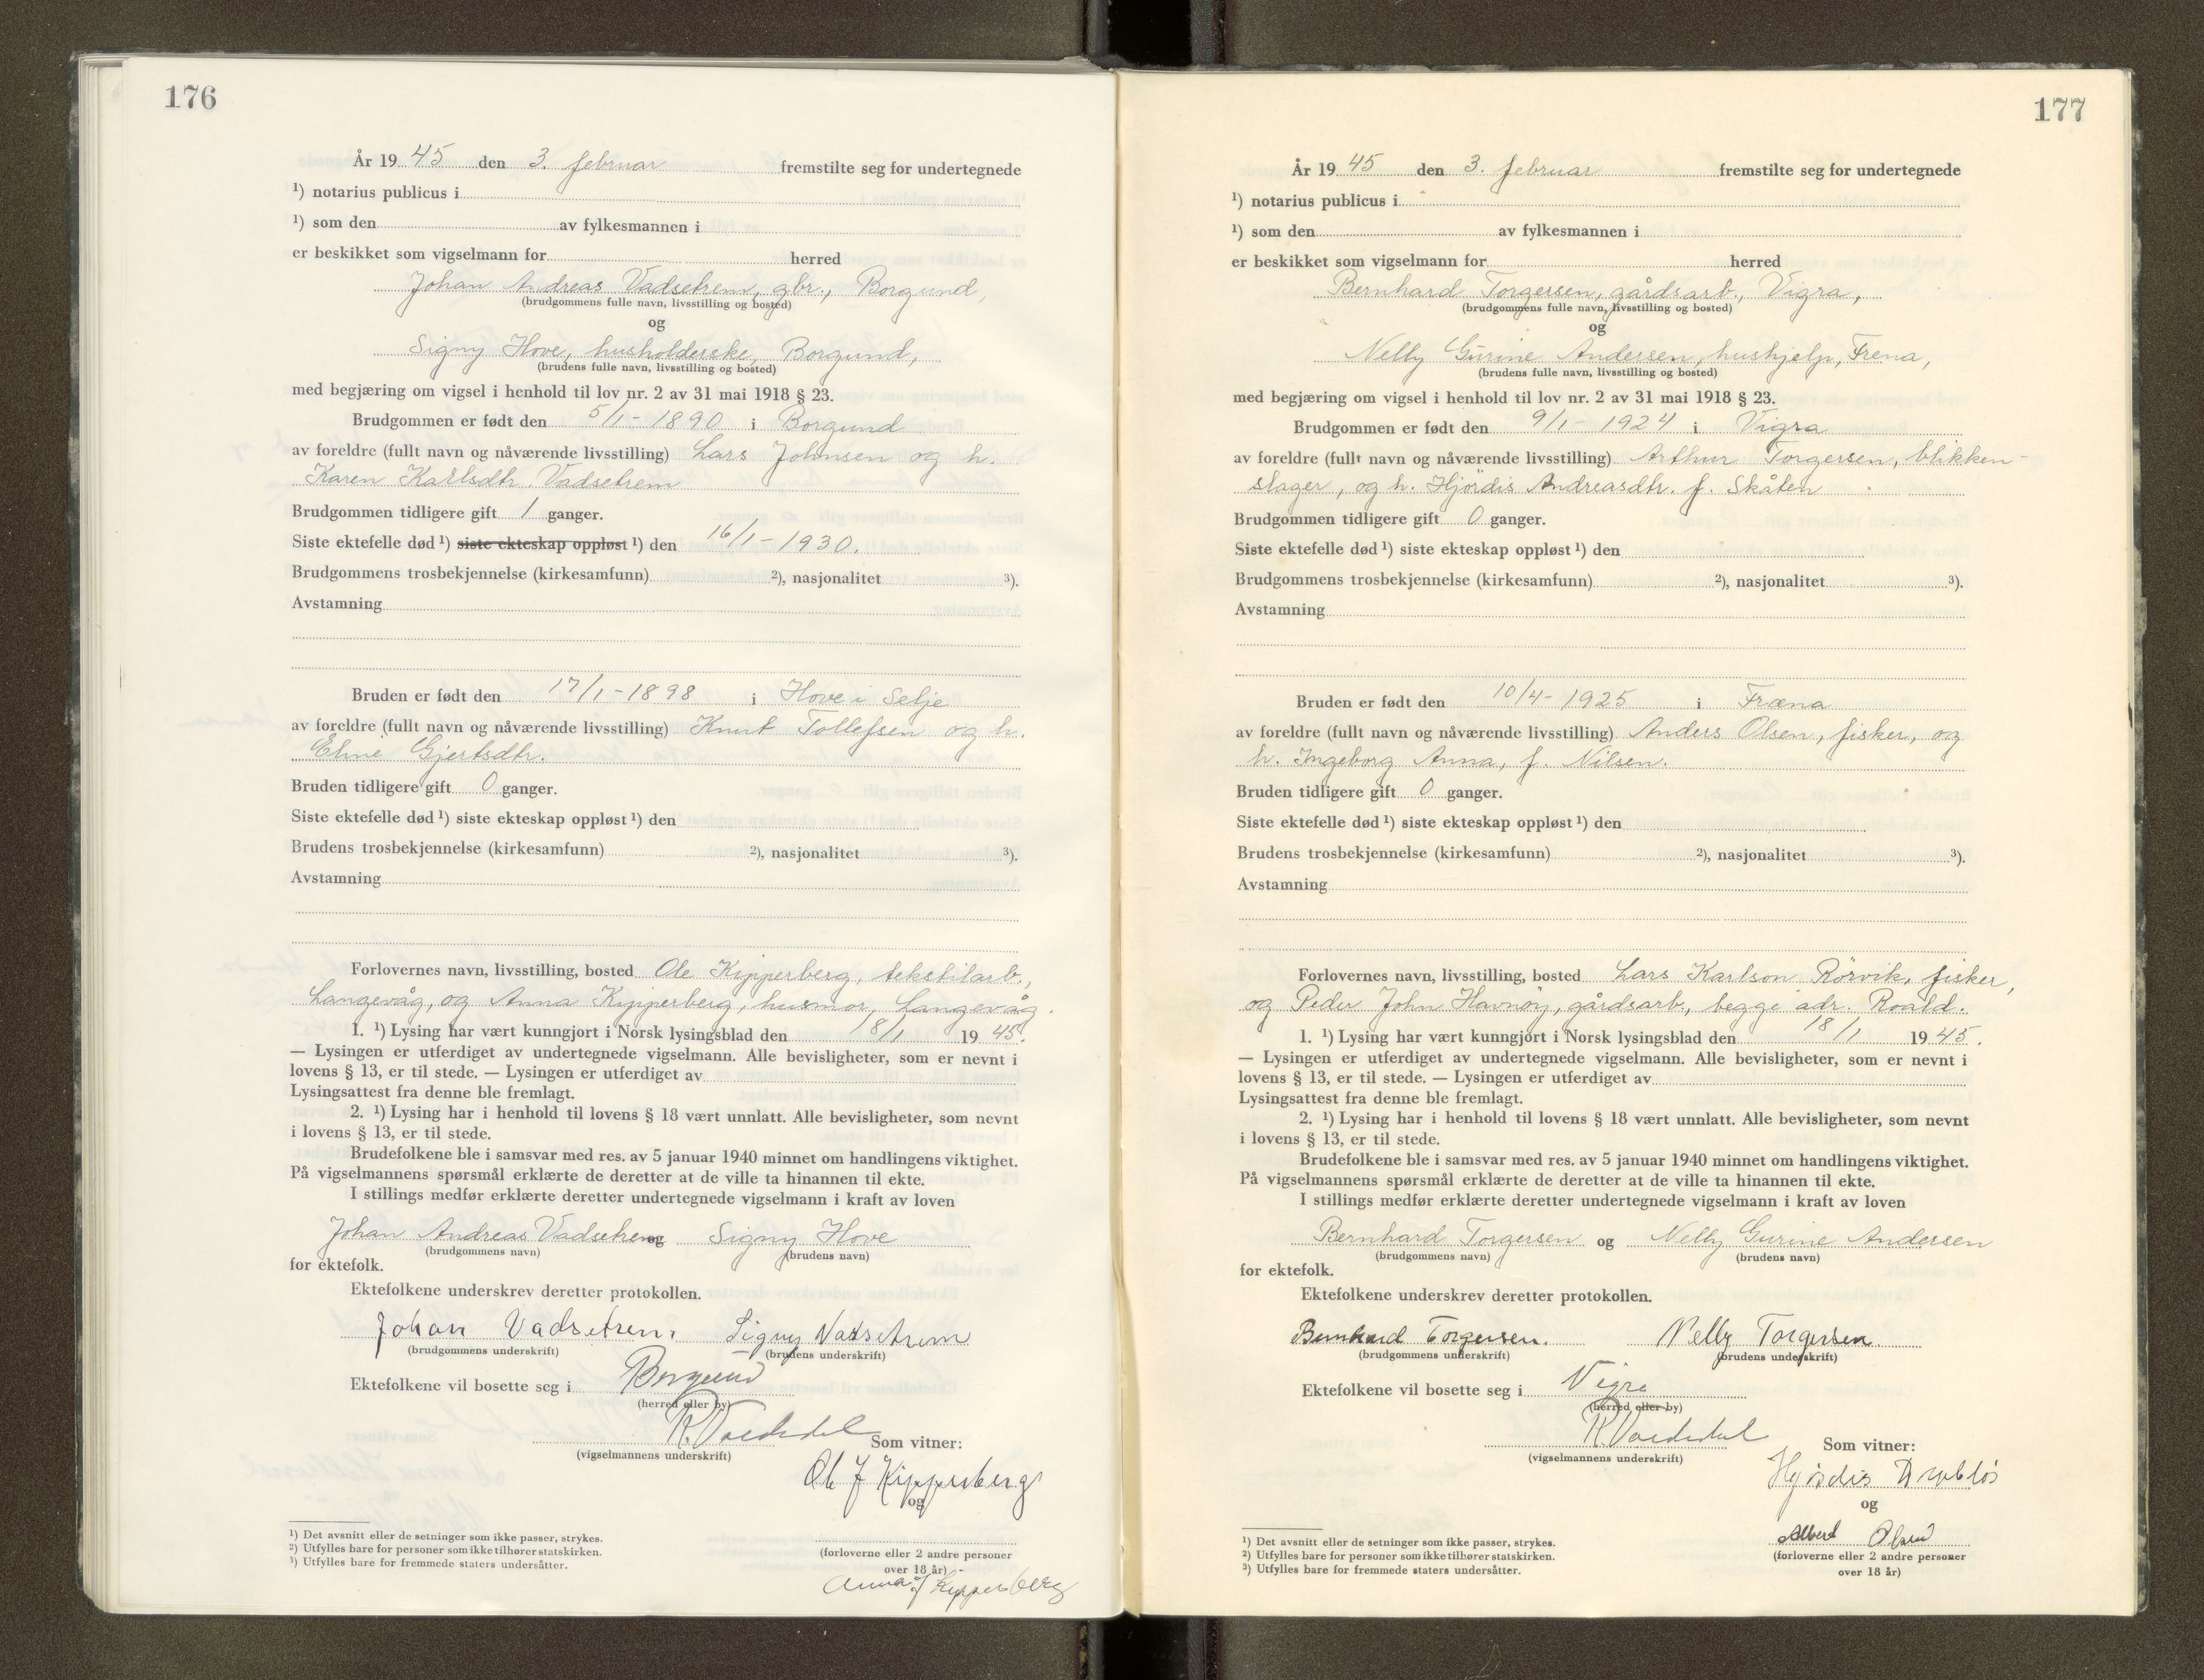 176
År 19 45 den 3. februar fremstilte seg for undertegnede
¹) notarius publicus i
¹) som den av fylkesmannen i
er beskikket som vigselmann for herred
Johan Andreas Vadsetrem, gbr., Borgund,
(brudgommens fulle navn, livsstilling og bosted)
og
Signy Hove, husholderske, Borgund,
(brudens fulle navn, livsstilling og bosted)
med begjæring om vigsel i henhold til lov nr. 2 av 31 mai 1918 § 23.
Brudgommen er født den 5/1 - 1890 i Borgund
av foreldre (fullt navn og nåværende livsstilling) Lars Johnsen og h.
Karen Karlsdtr. Vadsetrem
Brudgommen tidligere gift 1 ganger.
Siste ektefelle død ¹) siste ekteskap oppløst ¹) den 16/1 - 1930.
Brudgommens trosbekjennelse (kirkesamfunn) ²), nasjonalitet ³).
Avstamning
Bruden er født den 17/1 - 1898 i Hove i Selje
av foreldre (fullt navn og nåværende livsstilling) Knut Tollefsen og h.
Eline Gjertsdtr.
Bruden tidligere gift 0 ganger.
Siste ektefelle død ¹) siste ekteskap oppløst ¹) den
Brudens trosbekjennelse (kirkesamfunn) ²), nasjonalitet ³).
Avstamning
Forlovernes navn, livsstilling, bosted Ole Kipperberg, tekstilarb.,
Langevåg, og Anna Kipperberg, husmor, Langevåg.
1. ¹) Lysing har vært kunngjort i Norsk lysingsblad den 18/1 19 45.
— Lysingen er utferdiget av undertegnede vigselmann. Alle bevisligheter, som er nevnt i
lovens § 13, er til stede. — Lysingen er utferdiget av
Lysingsattest fra denne ble fremlagt.
2. ¹) Lysing har i henhold til lovens § 18 vært unnlatt. Alle bevisligheter, som nevnt
i lovens § 13, er til stede.
Brudefolkene ble i samsvar med res. av 5 januar 1940 minnet om handlingens viktighet.
På vigselmannens spørsmål erklærte de deretter at de ville ta hinannen til ekte.
I stillings medfør erklærte deretter undertegnede vigselmann i kraft av loven
Johan Andreas Vadsetrem og Signy Hove
(brudgommens navn) (brudens navn)
for ektefolk.
Ektefolkene underskrev deretter protokollen.
Johan Vadsetrem. Signy Vadsetrem
(brudgommens underskrift) (brudens underskrift)
Ektefolkene vil bosette seg i Borgund
(herred eller by)
(vigselmannens underskrift) Som vitner:
Ole J Kipperberg
og
(forloverne eller 2 andre personer
over 18 år)
Anna J Kipperberg
¹) Det avsnitt eller de setninger som ikke passer, strykes.
²) Utfylles bare for personer som ikke tilhører statskirken.
³) Utfylles bare for fremmede staters undersåtter.
177
År 19 45 den 3. februar fremstilte seg for undertegnede
¹) notarius publicus i
¹) som den av fylkesmannen i
er beskikket som vigselmann for herred
Bernhard Torgersen, gårdsarb., Vigra,
(brudgommens fulle navn, livsstilling og bosted)
og
Nelly Gurine Andersen, hushjelp, Frena,
(brudens fulle navn, livsstilling og bosted)
med begjæring om vigsel i henhold til lov nr. 2 av 31 mai 1918 § 23.
Brudgommen er født den 9/1 - 1924 i Vigra
av foreldre (fullt navn og nåværende livsstilling) Arthur Torgersen, blikken-
slager, og h. Hjördis Andreasdtr. f. Skåten
Brudgommen tidligere gift 0 ganger.
Siste ektefelle død ¹) siste ekteskap oppløst ¹) den
Brudgommens trosbekjennelse (kirkesamfunn) ²), nasjonalitet ³).
Avstamning
Bruden er født den 10/4 - 1925 i Fræna
av foreldre (fullt navn og nåværende livsstilling) Anders Olsen, fisker, og
h. Ingeborg Anna, f. Nilsen.
Bruden tidligere gift 0 ganger.
Siste ektefelle død ¹) siste ekteskap oppløst ¹) den
Brudens trosbekjennelse (kirkesamfunn) ²), nasjonalitet ³).
Avstamning
Forlovernes navn, livsstilling, bosted Lars Karlson Rörvik, fisker,
og Peder John Havnöy, gårdsarb., begge adr. Roald.
1. ¹) Lysing har vært kunngjort i Norsk lysingsblad den 18/1 19 45.
— Lysingen er utferdiget av undertegnede vigselmann. Alle bevisligheter, som er nevnt i
lovens § 13, er til stede. — Lysingen er utferdiget av
Lysingsattest fra denne ble fremlagt.
2. ¹) Lysing har i henhold til lovens § 18 vært unnlatt. Alle bevisligheter, som nevnt
i lovens § 13, er til stede.
Brudefolkene ble i samsvar med res. av 5 januar 1940 minnet om handlingens viktighet.
På vigselmannens spørsmål erklærte de deretter at de ville ta hinannen til ekte.
I stillings medfør erklærte deretter undertegnede vigselmann i kraft av loven
Bernhard Torgersen og Nelly Gurine Andersen
(brudgommens navn) (brudens navn)
for ektefolk.
Ektefolkene underskrev deretter protokollen.
Bernhard Torgersen. Nelly Torgersen.
(brudgommens underskrift) (brudens underskrift)
Ektefolkene vil bosette seg i Vigra
(herred eller by)
(vigselmannens underskrift) Som vitner:
Hjördis
og
Albert Olsen
(forloverne eller 2 andre personer
over 18 år)
¹) Det avsnitt eller de setninger som ikke passer, strykes.
²) Utfylles bare for personer som ikke tilhører statskirken.
³) Utfylles bare for fremmede staters undersåtter.